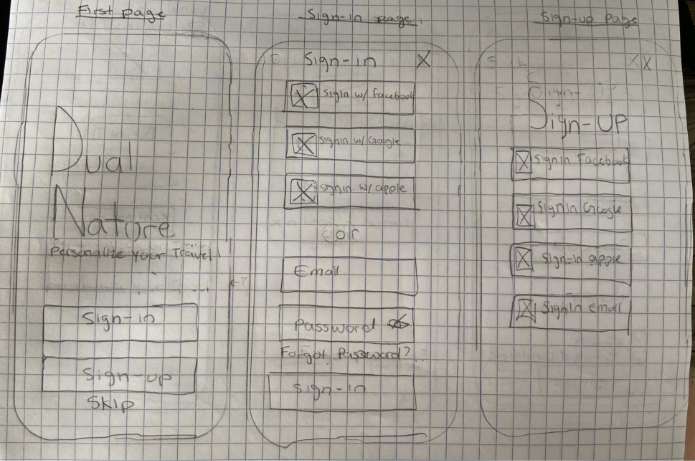 First page
Dual
Nature
Personalize Your Travel
Sign-in
Sign-up
SKIP
Sign-in page
Sign-in X
Signin w/ Facebook
Signin w/ Google
Signin w/ apple
or
Email
Password
Forgot Password?
Sign-in
Sign-up Page
X
Sign-
Sign-UP
Signin Facebook
Sign In Google
Sign-in apple
SignIn Email